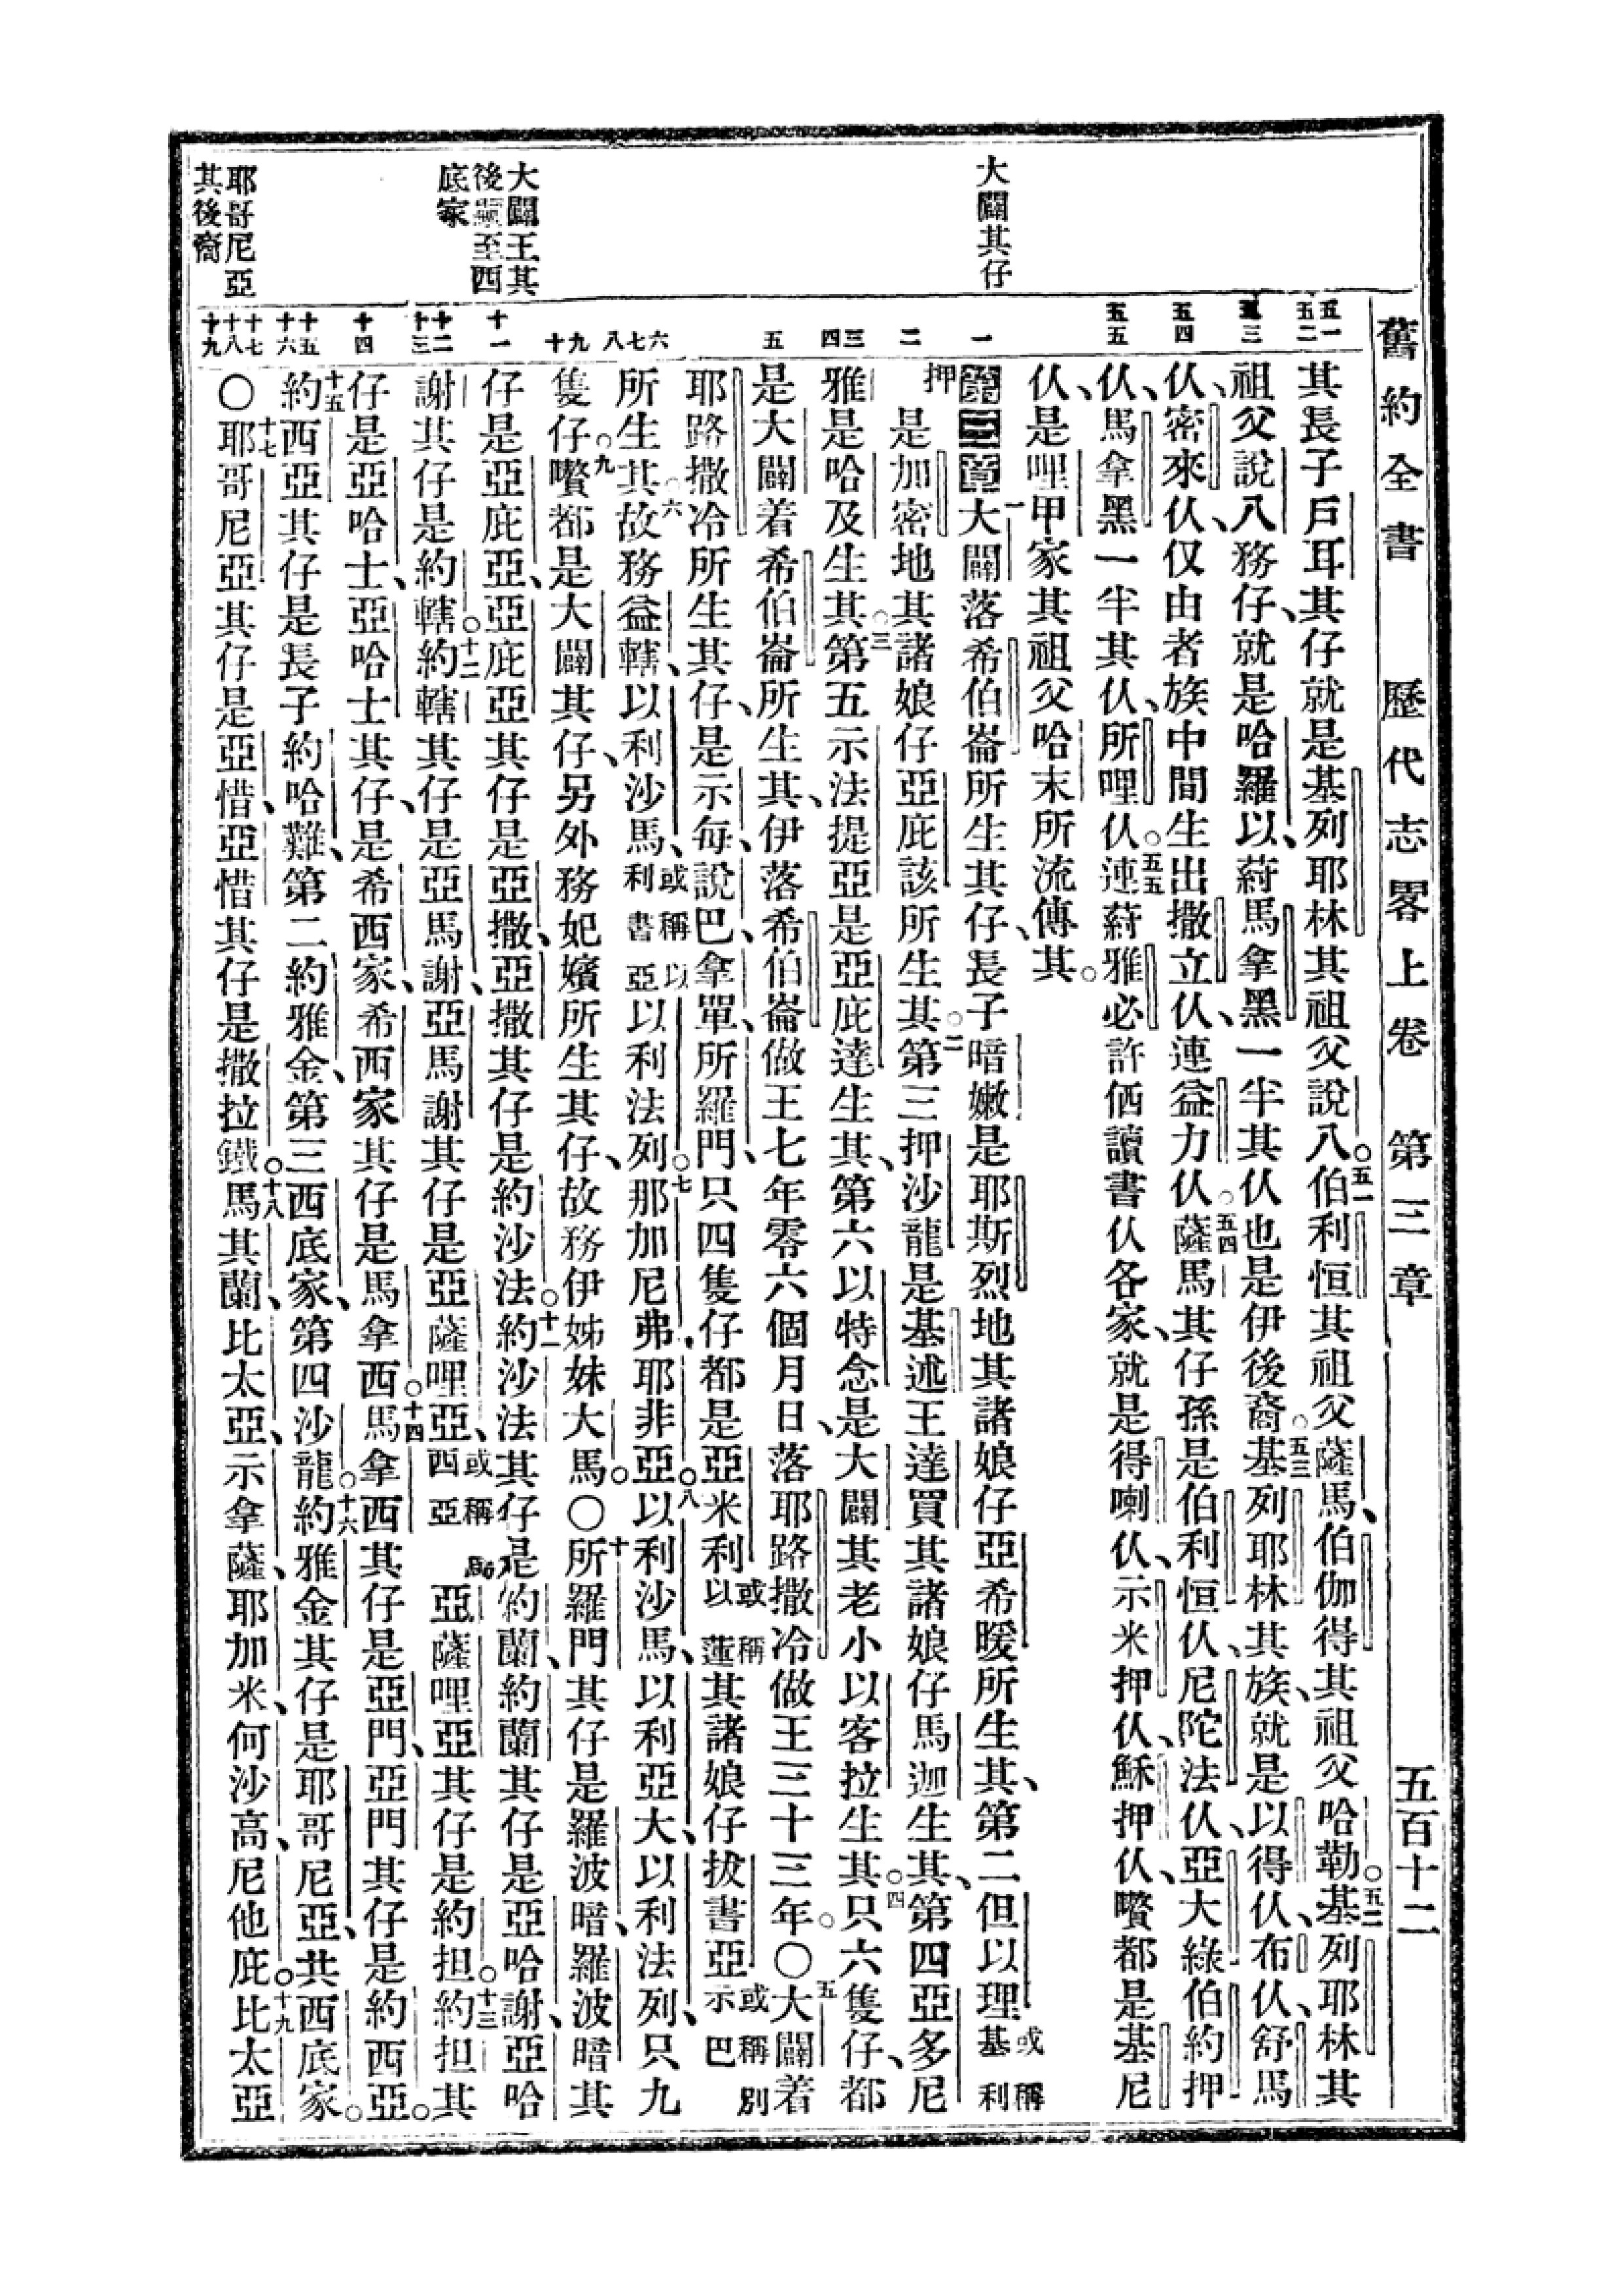 舊約全書 歷代志畧上卷 第三章 五百十二
大闢其仔
大闢王其
後至西
底家
耶哥尼亞
其後裔
五一 五二 五三 五四 五五 一 二 三 四 五 六 七 八 九 十 十一 十二 十三 十四 十五 十六 十七 十八 十九
其長子戶耳其仔就是基列耶林其祖父說八○五一伯利恒其祖父薩馬、伯伽得其祖父哈勒○五二基列耶林其
祖父說八務仔、就是哈羅以、蔚馬拿黑一半其仸也是伊後裔○五三基列耶林其族、就是以得仸、布仸、舒馬
仸、密來仸、仅由者族中間生出撒立仸、連益力仸○五四薩馬其仔孫是伯利恒仸、尼陀法仸、亞大綠伯約押
仸、馬拿黑一半其仸、所哩仸○五五連蔚雅必許㑚讀書仸各家、就是得喇仸、示米押仸、穌押仸、嚽都是基尼
仸、是哩甲家其祖父哈末所流傳其○
第三章 一大闢落希伯崙所生其仔、長子暗嫩是耶斯烈地其諸娘仔亞希暖所生其、第二但以理或稱基利
押是加密地其諸娘仔亞庇該所生其○二第三押沙龍是基述王達買其諸娘仔馬迦生其、第四亞多尼
雅是哈及生其○三第五示法提亞是亞庇達生其、第六以特念是大闢其老小以客拉生其○四只六隻仔、都
是大闢着希伯崙所生其、伊落希伯崙做王七年零六個月日、落耶路撒冷做王三十三年○〇五大闢着
耶路撒冷所生其仔、是示每、說巴、拿單、所羅門、只四隻仔都是亞米利或稱以蓮其諸娘仔拔書亞或稱別示巴
所生其○六故務益轄、以利沙馬、或稱以利書亞以利法列○七那加、尼弗、耶非亞○八以利沙馬、以利亞大、以利法列、只九
隻仔○九嚽都是大闢其仔、另外務妃嬪所生其仔、故務伊姊妹大馬○〇十所羅門其仔是羅波暗、羅波暗其
仔是亞庇亞、亞庇亞其仔是亞撒、亞撒其仔是約沙法○十一約沙法其仔是約蘭、約蘭其仔是亞哈謝、亞哈
謝其仔是約轄○十二約轄其仔是亞馬謝、亞馬謝其仔是亞薩哩亞、或稱烏西亞亞薩哩亞其仔是約担○十三約担其
仔是亞哈士、亞哈士其仔、是希西家、希西家其仔是馬拿西○十四馬拿西其仔是亞門、亞門其仔是約西亞○
十五約西亞其仔是長子約哈難、第二約雅金、第三西底家、第四沙龍○十六約雅金其仔是耶哥尼亞、共西底家○
〇十七耶哥尼亞其仔是亞惜、亞惜其仔是撒拉鐵○十八馬其蘭、比太亞、示拿薩、耶加米、何沙高、尼他庇○十九比太亞